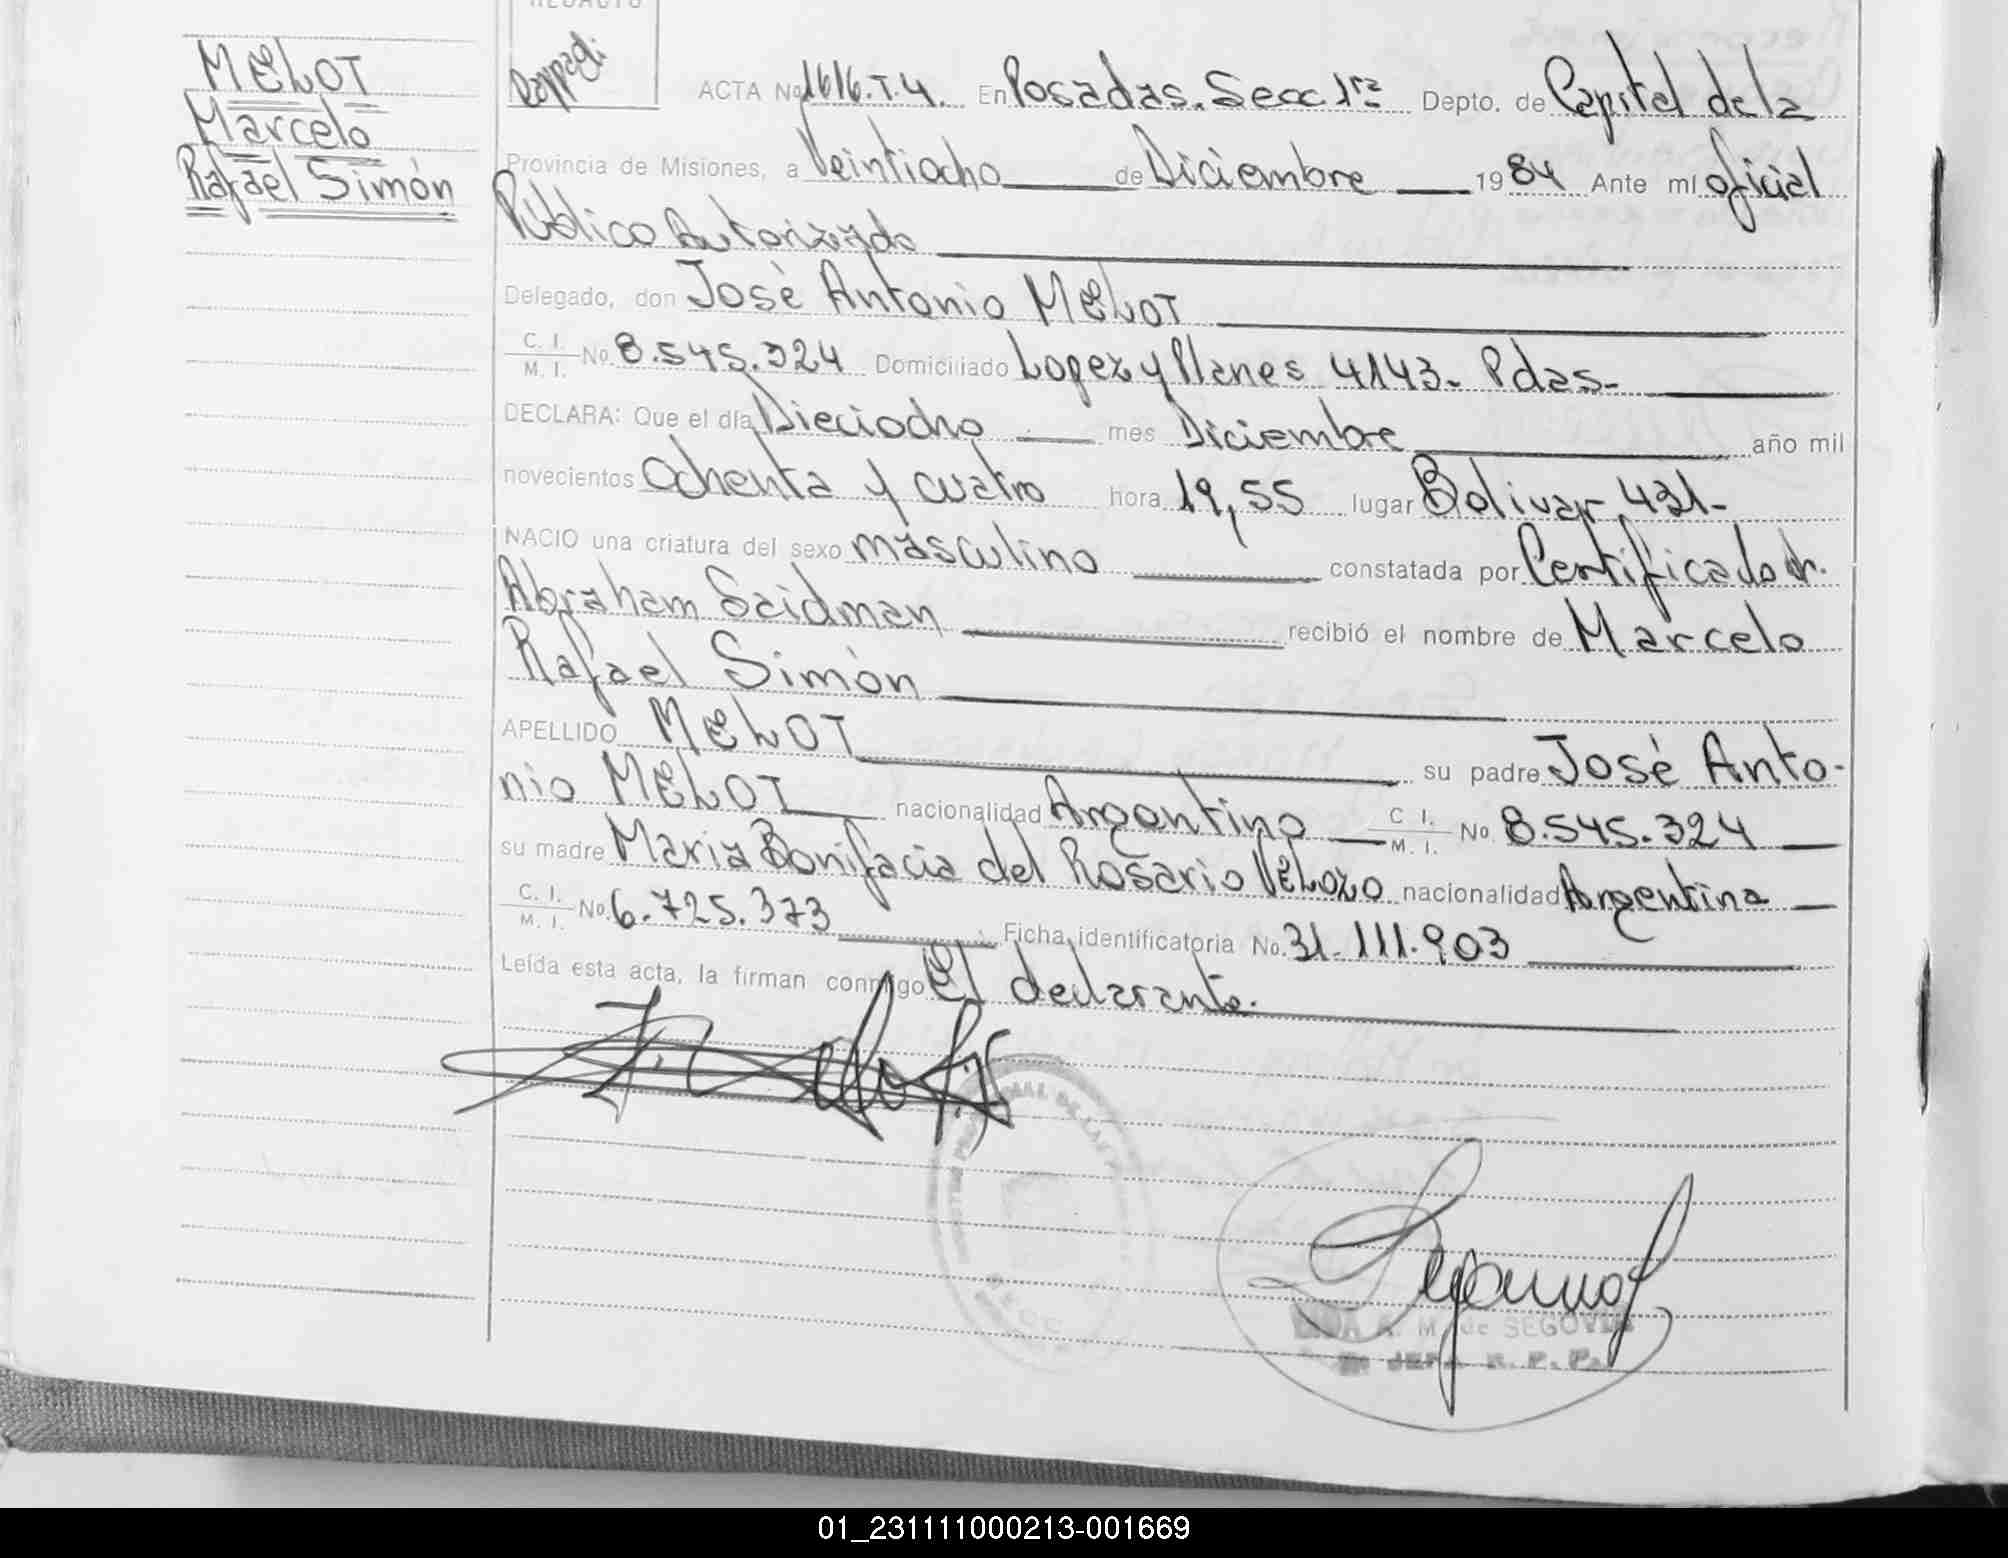 MELOT
Marcelo
Rafael Simón
REDACTO
ACTA No 1616.T.4. En Posadas. Secc 1ra Depto. de Capital de la
Provincia de Misiones, a Veintiocho de Diciembre 1984 Ante mí oficial
Público Autorizado
Delegado, don José Antonio MELOT
C. I. / M. I. No. 8.545.324 Domiciliado Lopez y Planes 4143- Pdas-
DECLARA: Que el día Dieciocho mes Diciembre año mil
novecientos ochenta y cuatro hora 19,55 lugar Bolivar 431-
NACIO una criatura del sexo masculino constatada por Certificado dr.
Abraham Saidman recibió el nombre de Marcelo
Rafael Simón
APELLIDO MELOT su padre José Anto-
nio MELOT nacionalidad Argentino C I. / M. I. No. 8.545.324
su madre Maria Bonifacia del Rosario VELOZO nacionalidad Argentina
C. I. / M. I. No. 6.725.373 Ficha identificatoria No. 31.111.903
Leída esta acta, la firman conmigo El declarante.
A. M. de SEGOVIA
JEFA R. P. P.
01_231111000213-001669